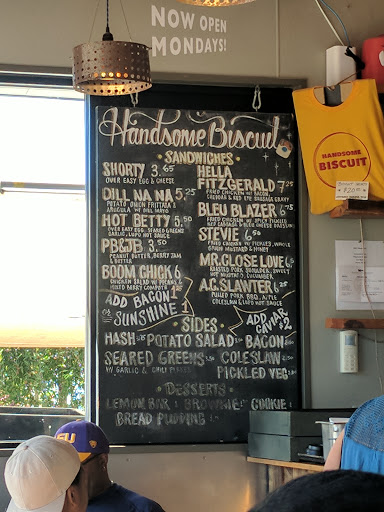 NOW OPEN
MONDAYS!
Handsome Biscuit
SANDWICHES
SHORTY 3.65
OVER EASY EGG & CHEESE
DILL MURHA 5.25
POTATO, ONION FRITTATA &
ARUGULA W/ DILL MAYO
HOT BETTY 5.50
OVER EASY EGG, SEARED GREENS
GARLIC, LUPO HOT SAUCE
PB&JB 3.50
PEANUT BUTTER, BERRY JAM
& BUTTER
BOOM CHICK 6
CHICKEN SALAD W/ PECANS &
MIXED BERRY COMPOTE
ADD BACON 1
SUNSHINE 1
HELLA
FITZGERALD 7.25
FRIED CHICKEN W/ BACON,
CHEDDAR & RED EYE SAUSAGE GRAVY
BLEU BLAZER 6.75
FRIED CHICKEN W/ SPICY PICKLED
RED CABBAGE & BLEU CHEESE DRESSING
STEVIE 6.50
FRIED CHICKEN W/ PICKLES, WHOLE
GRAIN MUSTARD & HONEY
MR. CLOSE LOVE 6.5
ROASTED PORK SHOULDER, SWEET
HOT MUSTARD, CUCUMBER
A.C. SLAWTER 6.25
PULLED PORK BBQ, APPLE
COLESLAW & LUPO HOT SAUCE
ADD CAVIAR
+2
SIDES
HASH POTATO SALAD BACON
SEARED GREENS COLESLAW
W/ GARLIC & CHILI FLAKES
PICKLED VEG
DESSERTS
LEMON BAR BROWNIE COOKIE
BREAD PUDDING
HANDSOME
BISCUIT